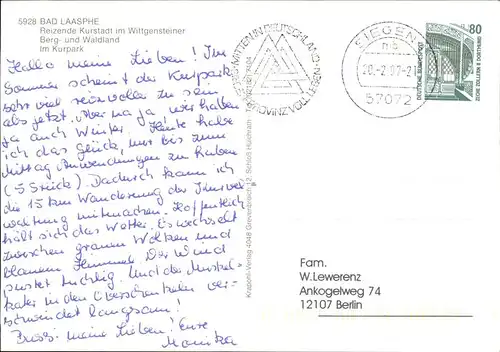 5928 BAD LAASPHE
Reizende Kurstadt im Wittgensteiner
Berg- und Waldland
Im Kurpark
Hallo meine Lieben! Im
Sommer scheint der Kurpark
sehr viel reizvoller zu sein
als jetzt. Aber na ja wir haben
ja auch Winter. Heute habe
ich das Glück, nur bis zum
Mittag Anwendungen zu haben
(5 Stück). Dadurch kann ich
die 15 km Wanderung der
mitmachen. Hoffentlich
hält sich das Wetter. Es wechselt
zwischen grauen Wolken und
blauem Himmel. Der Wind
pustet tüchtig. Und der Muskel-
kater in den Oberschenkeln ver-
schwindet langsam!
Bussi meine Lieben! Eure
Monika
Krapohl-Verlag 4048 Grevenbroich 12, Schloß Hülchrath
MITTEN IN DEUTSCHLAND
SIEGEN
57072
80
Fam.
W.Lewerenz
Ankogelweg 74
12107 Berlin